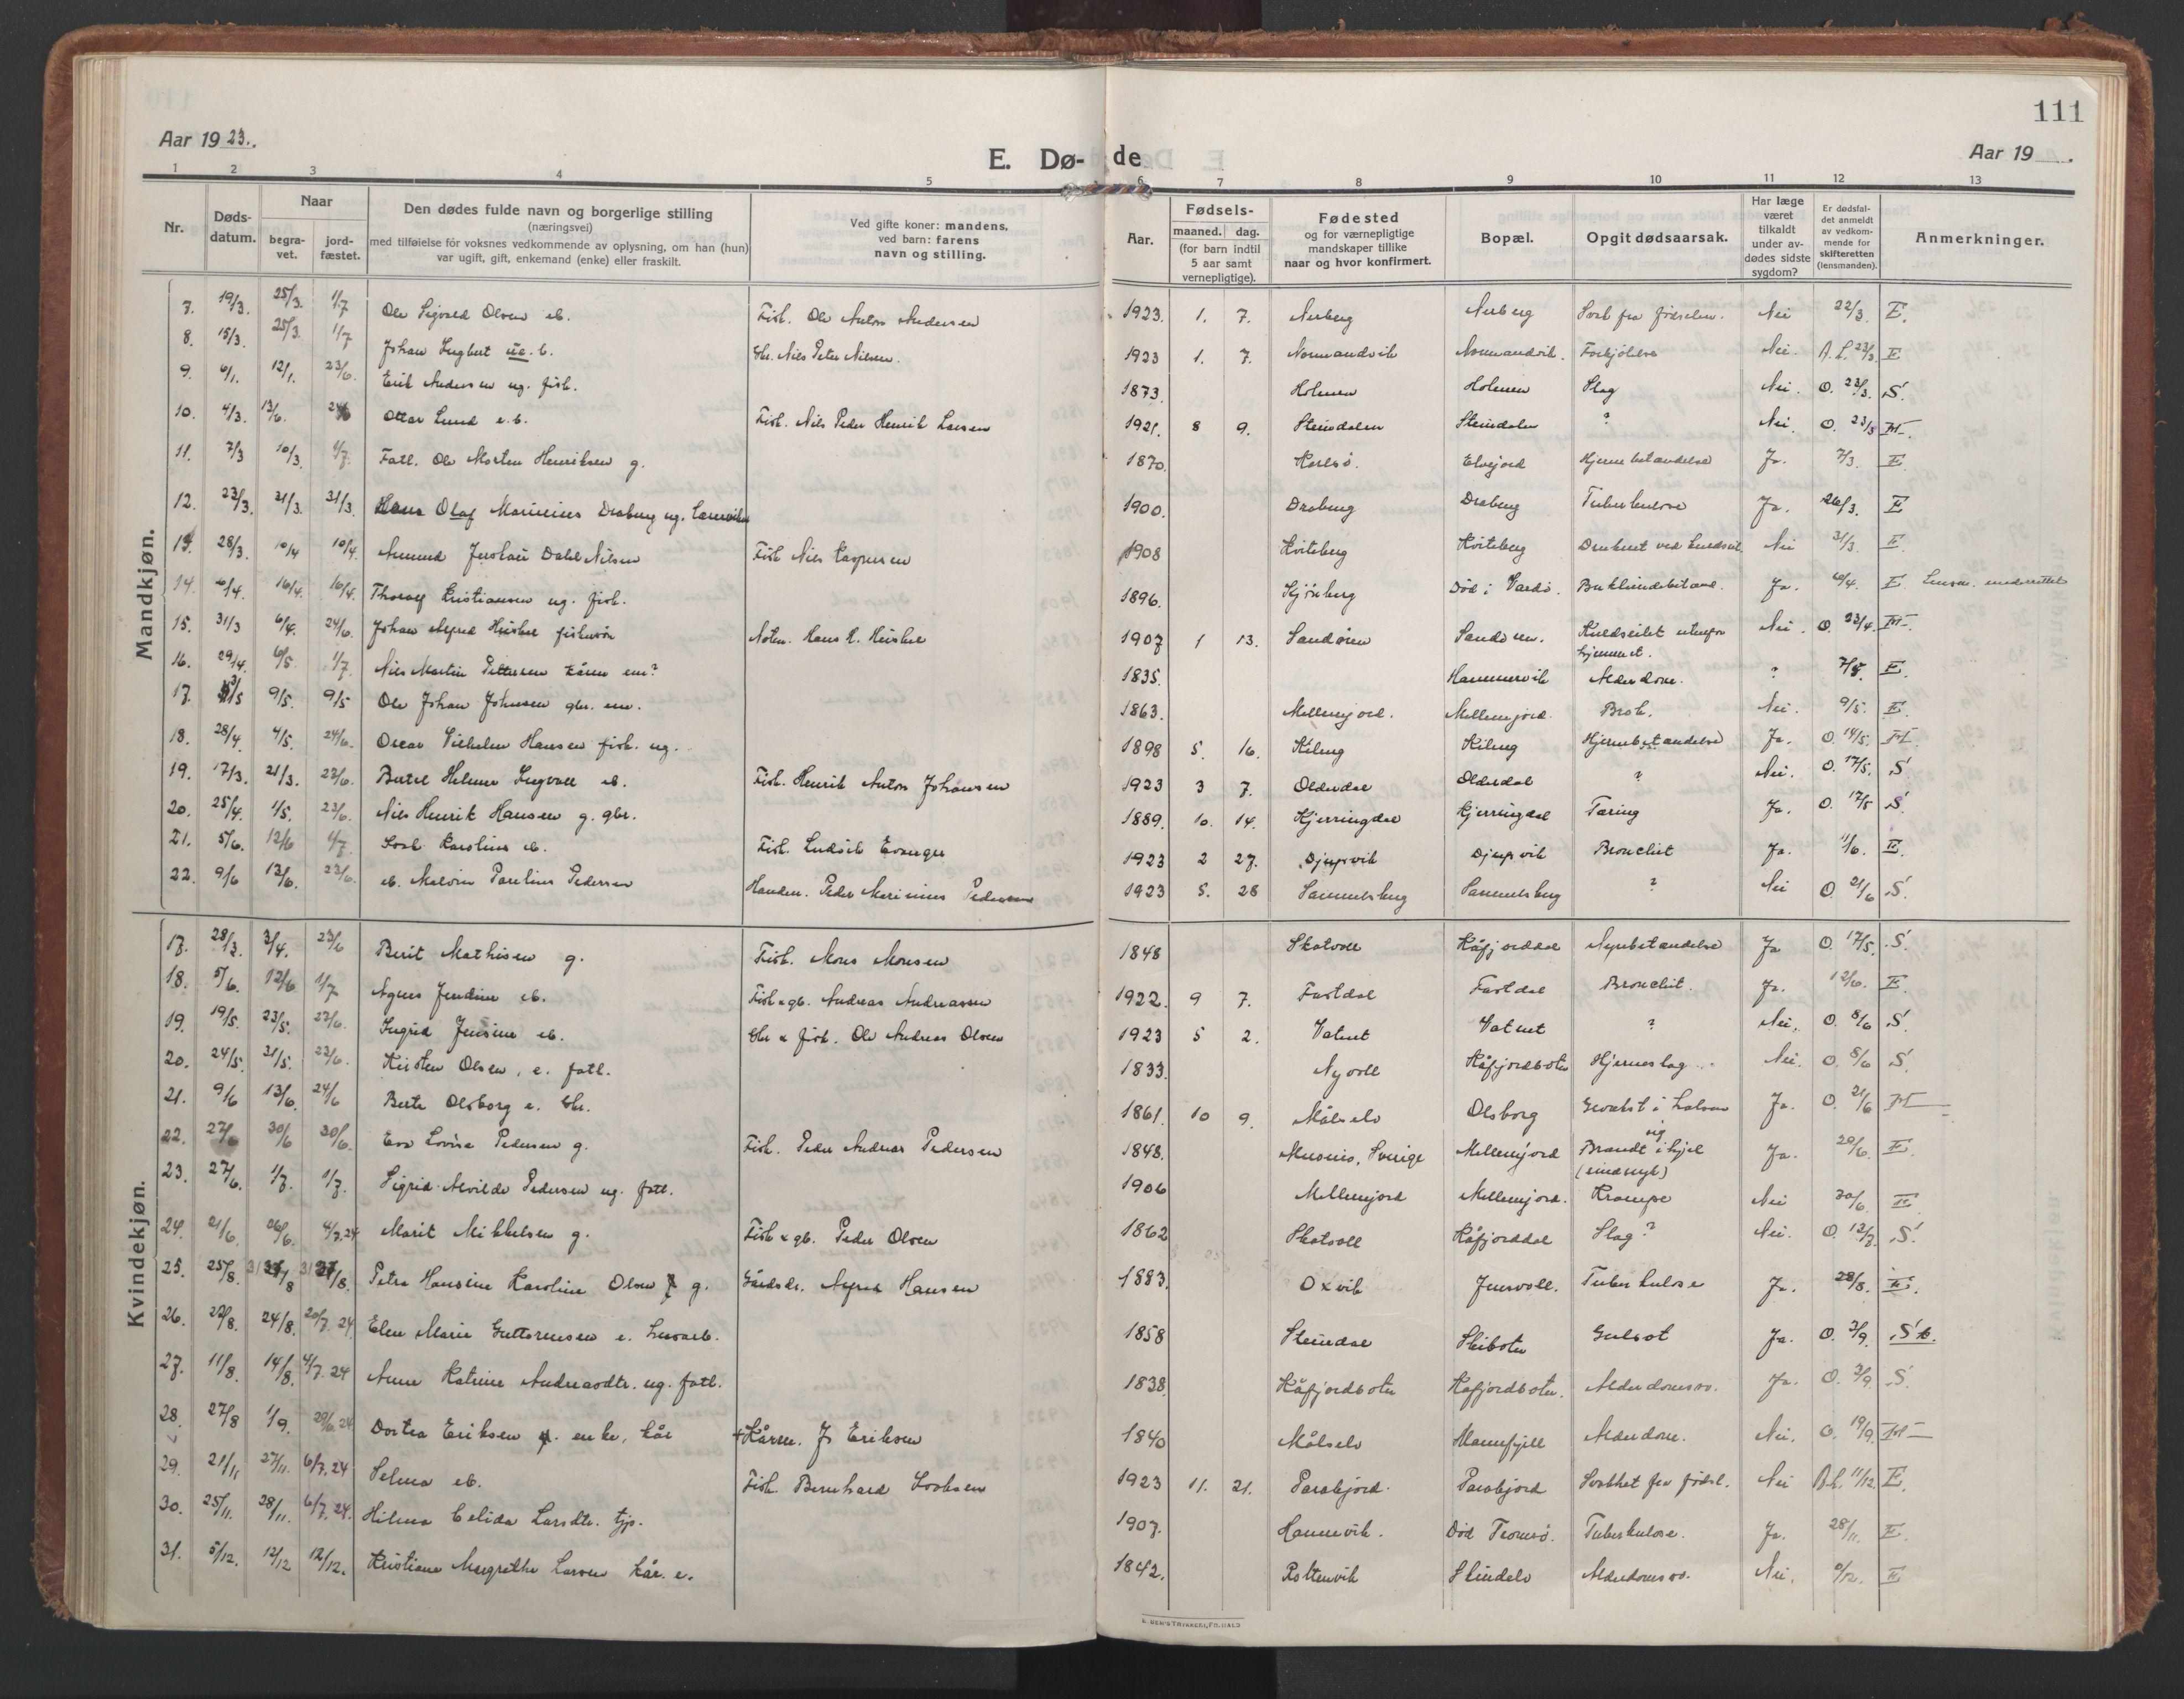 111
Aar 1923.
E. Dø- de
Aar 19 .
1 2 3 4 5 6 7 8 9 10 11 12 13
Nr.
Døds-
datum.
Naar
begra-
vet.
jord-
fæstet.
Den dødes fulde navn og borgerlige stilling
(næringsvei)
med tilføielse for voksnes vedkommende av oplysning, om han (hun)
var ugift, gift, enkemand (enke) eller fraskilt.
Ved gifte koner: mandens,
ved barn: farens
navn og stilling.
Aar.
Fødsels-
maaned. dag.
(for barn indtil
5 aar samt
vernepligtige).
Fødested
og for værnepligtige
mandskaper tillike
naar og hvor konfirmert.
Bopæl.
Opgit dødsaarsak.
Har læge
været
tilkaldt
under av-
dødes sidste
sygdom?
Er dødsfal-
det anmeldt
av vedkom-
mende for
skifteretten
(lensmanden).
Anmerkninger.
Mandkjøn.
7. 19/3. 25/3. 1/7 Ole Sigvald Olsen eb. Fisk. Ole Anton Andersen 1923. 1. 7. Nerberg Nerberg Svak fra fødselen. Nei 22/3. E.
8. 15/3. 25/3. 1/7 Johan Ingbert ue. b. Gbr. Nils Peter Nilsen. 1923 1. 7. Normandvik Normandvik. Forkjølelse Nei. A.L. 23/3 E
9. 6/1. 12/1. 23/6. Erik Andersen ug. fisk. 1873. Holmen Holmen Slag Nei. O. 23/3. S.
10. 4/3. 13/6. 24/6 Ottar Lund e.b. Fisk. Nils Peder Henrik Larsen 1921. 8 9. Steindalen Steindalen ? Nei. O. 23/3 M.
11. 7/3 10/3. 1/7. Fatl. Ole Morten Henriksen g. 1870. Karlsö. Elvejord Hjernebetændelse Ja. 7/3. E.
12. 23/3. 31/3. 31/3. Hans Olaf Marinius Draberg ug. 1900. Draberg Draberg Tuberkulose Ja. 26/3. E
13. 28/3. 10/4 10/4. Amund Dahl Nilsen Fisk Nils Kaspersen 1908 Kviteberg Kviteberg Druknet ved Nei 31/3. E.
14. 6/4. 16/4. 16/4. Thoralf Kristiansen ug. fisk. 1896. Kjönberg Död i Vardö. Ja. 6/4. E
15. 31/3 6/4. 24/6. Johan Alfred fiskersön Hans 1907 1 13. Sandören Sandören. Kuldseilet utenfor hjemmet. Nei. O. 23/4. M.
16. 29/4. 6/5. 1/7. Nils Martin Pettersen em? 1835. Hammervik Alderdom. ? 7/5. E.
17. 3/5 9/5. 9/5 Ole Johan Johnsen gbr. em. 1863. Mellemjord. Mellemjord. Brok. Nei. 9/5. E.
18. 28/4. 4/5. 24/6. Oscar Vilhelm Hansen fisk. ug. 1898 5. 16. Kileng Kileng Hjernebetændelse Ja. O. 14/5. M.
19. 17/3. 21/3. 22/6. Bertel Helmer Ingvall eb. Fisk. Henrik Anton Johansen 1923 3 7. Olderdal Olderdal ? Nei. O. 17/5. S.
20. 25/4. 1/5. 23/6. Nils Henrik Hansen g. gbr. 1889. 10. 14. Kjerringdal Kjerringdal Tæring Ja. O. 17/5 S.
21. 5/6. 12/6 1/7. Karoline eb. Fisk. Ludvik 1923 2 27. Djupvik Djupvik Bronchit Ja. 11/6. E.
22. 9/6 13/6. 23/6. eb. Melvin Paulius Pedersen Handm. Peder Marinius Pedersen 1923 5. 28 Samuelsberg Samuelsberg ? Nei O. 21/6 S.
Kvindekjøn.
17. 28/3. 3/4. 23/6 Berit Mathisen g. Fisk. Mons Monsen 1848 Skatvoll Kåfjorddal Nyrebetændelse Ja O. 17/5. S.
18. 5/6. 12/6 1/7 Agnes Jendine eb. Fisk & gb. Andreas Andreassen 1922. 9 7. Fastdal Fastdal Bronchit. Ja. 12/6. E.
19. 19/5. 23/5. 22/6. Ingrid Jensine eb. Gbr & fisk. Ole Andreas Olsen 1923 5 2. Vatnet Vatnet ? Nei. O. 8/6 S.
20. 24/5. 31/5. 23/6. Kirsten Olsen, e. fatl. 1833. Nyvoll Kåfjordbotn Hjerneslag. Nei. O. 8/6 S.
21. 9/6 13/6. 24/6 Berte Olsborg e. Gbr. 1861. 10 9. Målselv Olsborg Gevækst i halsen Ja. O. 21/6 M
22. 27/6 30/6 30/6. Eva Lovise Pedersen g. Fisk. Peder Andreas Pedersen 1848. Muonio, Sverige Mellemjord Brandt sig ihjel (sindssyk) Ja. 20/6. E.
23. 27/6. 1/7. 1/7. Sigrid Alvilde Pedersen ug. fatl. 1906 Mellemjord Mellemjord. Krampe Nei 30/6. E.
24. 21/6. 26/6. 4/7.24 Marit Mikkelsen g. Fisk & gb. Peder Olsen 1862 Skatvoll Kåfjorddal Slag? Nei. O. 12/7. S.
25. 25/8. 31/8 31/8. Petra Hansine Karoline Olsen g. Gårdsbr. Alfred Hansen 1883. Oxvik Jensvoll. Tuberkulose Ja. 28/8. E.
26. 22/8. 24/8. 20/7. 24 Elen Marie Guttormsen e. 1858 Steindal Skibotn Gulsot Ja. O. 3/9. Sk.
27. 11/8. 14/8. 4/7. 24 Anne Katrine Andreasdtr. ug. fatl. 1838. Kåfjordbotn Kåfjordbotn. Alderdomssv. Ja. O. 3/9. S.
28. 27/8 1/9. 29/6 24 Dortea Eriksen enke, kår + Kårm. Js Eriksen 1840 Målselv Mannfjell Alderdom. Nei. O. 19/9. M
29. 21/11 27/11. 6/7.24 Selma eb. Fisk. Bernhard Isaksen 1923 11. 21. Parakjord. Parakjord Svakhet fra födsl. Nei A.L. 11/12. E.
30. 25/11. 28/11. 6/7. 24. Hilma Celida Larsdtr. tjp. 1907. Hannevik. Död Tromsö. Tuberkulose. Ja. 28/11. E.
31. 5/12. 12/12 12/12. Kristiane Margrethe Larsen kår. e. 1842. Rottenvik Skindelv Alderdomssv. Nei. E